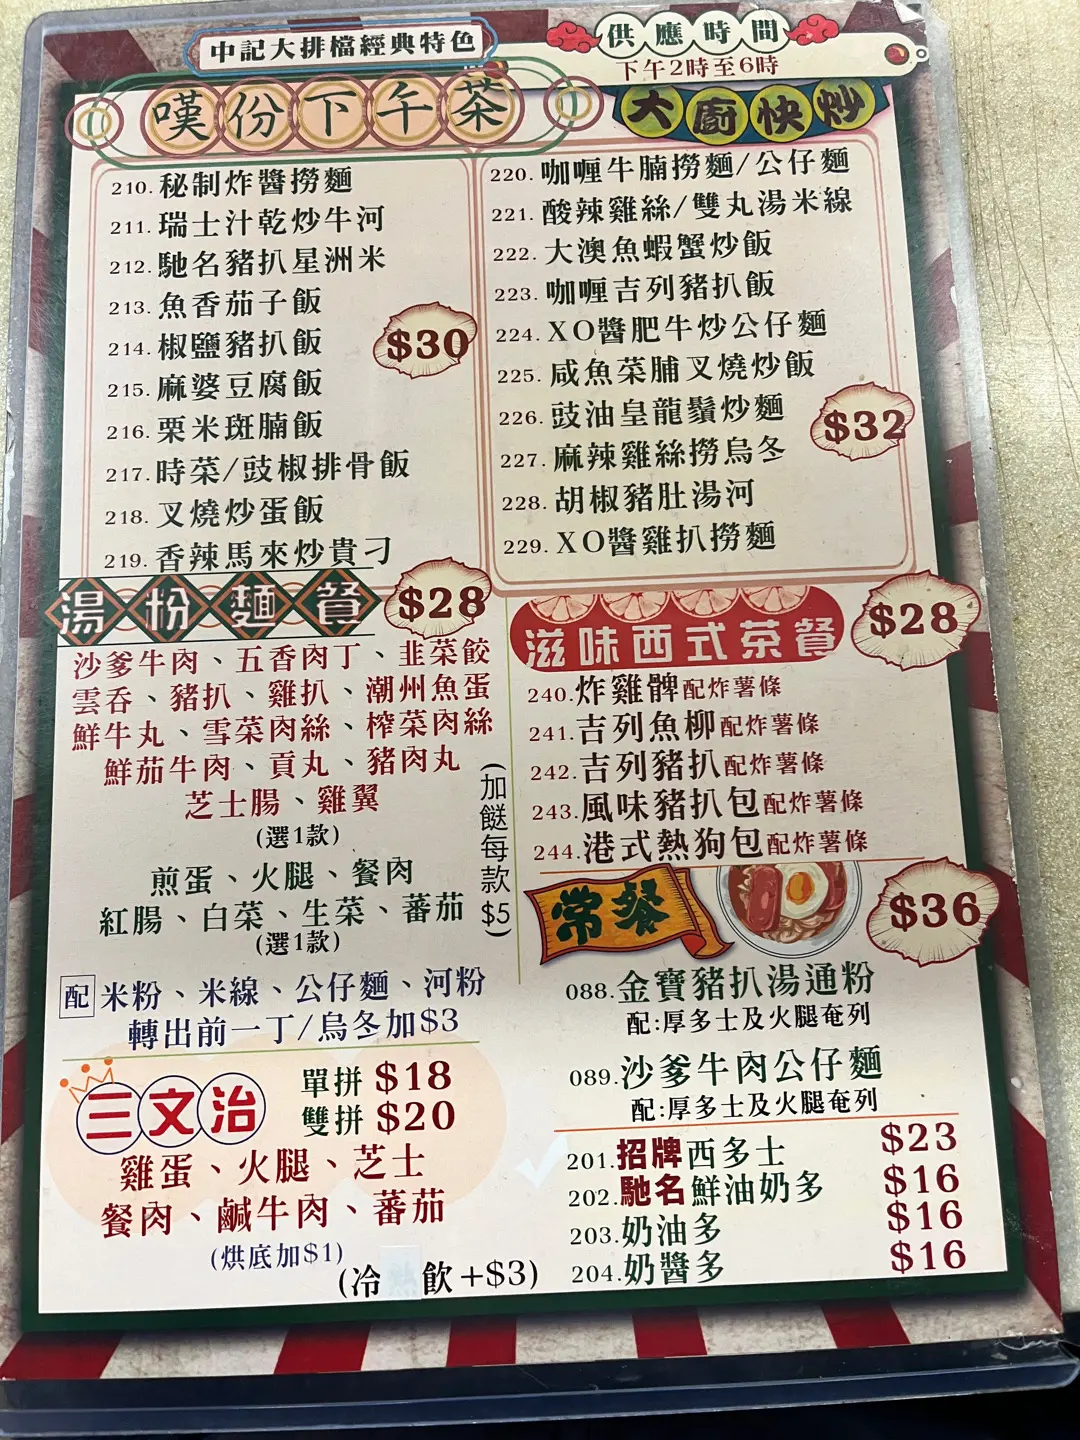 中記大排檔經典特色
供應時間
下午2時至6時
嘆份下午茶
大廚快炒
210.秘制炸醬撈麵
211.瑞士汁乾炒牛河
212.馳名豬扒星洲米
213.魚香茄子飯
214.椒鹽豬扒飯
215.麻婆豆腐飯
216.粟米斑腩飯
217.時菜/豉椒排骨飯
218.叉燒炒蛋飯
219.香辣馬來炒貴刁
$30
220.咖喱牛腩撈麵/公仔麵
221.酸辣雞絲/雙丸湯米線
222.大澳魚蝦蟹炒飯
223.咖喱吉列豬扒飯
224.XO醬肥牛炒公仔麵
225.咸魚菜脯叉燒炒飯
226.豉油皇龍鬚炒麵
227.麻辣雞絲撈烏冬
228.胡椒豬肚湯河
229.XO醬雞扒撈麵
$32
湯粉麵餐
$28
沙爹牛肉、五香肉丁、韭菜餃
雲吞、豬扒、雞扒、潮州魚蛋
鮮牛丸、雪菜肉絲、榨菜肉絲
鮮茄牛肉、貢丸、豬肉丸
芝士腸、雞翼
(選1款)
煎蛋、火腿、餐肉
紅腸、白菜、生菜、蕃茄
(選1款)
(加餸每款$5)
配 米粉、米線、公仔麵、河粉
轉出前一丁/烏冬加$3
三文治
單拼 $18
雙拼 $20
雞蛋、火腿、芝士
餐肉、鹹牛肉、蕃茄
(烘底加$1)
(冷 飲+$3)
滋味西式茶餐
$28
240.炸雞髀配炸薯條
241.吉列魚柳配炸薯條
242.吉列豬扒配炸薯條
243.風味豬扒包配炸薯條
244.港式熱狗包配炸薯條
常餐
$36
088.金寶豬扒湯通粉
配:厚多士及火腿奄列
089.沙爹牛肉公仔麵
配:厚多士及火腿奄列
201.招牌西多士 $23
202.馳名鮮油奶多 $16
203.奶油多 $16
204.奶醬多 $16